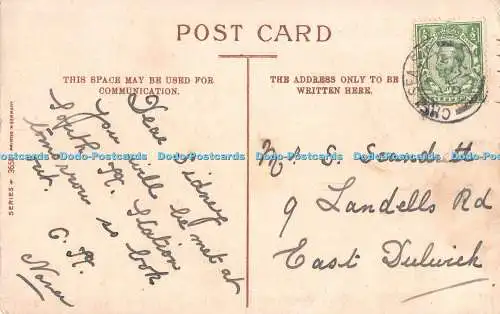 POST CARD
THIS SPACE MAY BE USED FOR
COMMUNICATION.
THE ADDRESS ONLY TO BE
WRITTEN HERE.
Dear Sidney
you will be met at
South K. Station
tomorrow so look
out.
C. K.
Mr S.
9 Landells Rd
East Dulwich
SERIES
PRINTED IN GERMANY
CHELSEA
Dodo-Postcards Dodo-Postcards Dodo-Postcards Dodo-Postcards Dodo-Postcards Dodo-Postcards